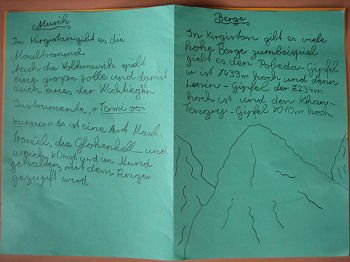 Musik
In Kirgistan gibt es die
Maultrommel.
Auch die Volksmusik spielt
eine große rolle und damit
auch eines der Wichtigen
Instrumente,
es ist eine Art Maul-
tromel, die Glockenhell und
weich klingt und, im Mund
gehalten, mit dem Finger
gezupft wird.
Berge
In Kirgistan gibt es viele
hohe Berge zumbeispiel
giebt es den Pobeda-Gipfel
er ist 7439m hoch und denn
Lenin-Gipfel der 7234m
hoch ist und den Khan-
Tengry-Gipfel 7010m hoch.